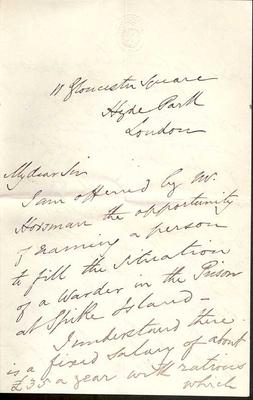 11 Gloucester Square
Hyde Park
London
My dear Sir
I am offered by Mr.
Horsman the opportunity
of naming a person
to fill the situation
of a Warder in the Prison
at Spike Island –
I understand there
is a fixed salary of about
£35 a year with rations
which